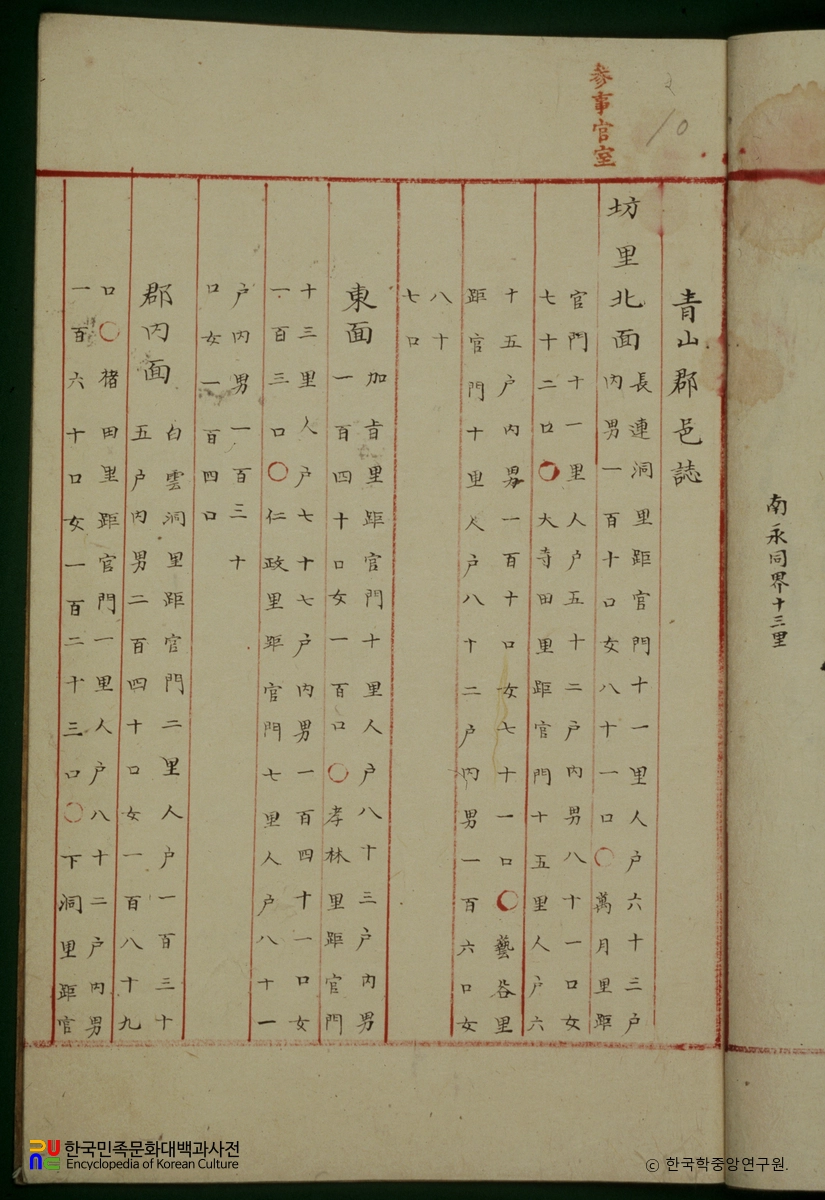 参事官室
10
南永同界十三里
青山郡邑誌
坊里北面
長連洞里距官門十一里人户六十三户
内男一百十口女八十一口○萬月里距
官門十一里人户五十二户内男八十一口女
七十二口○大寺田里距官門十五里人户六
十五户内男一百十口女七十一口○藝谷里
距官門十里人户八十二户内男一百六口女
八十
七口
東面
加旨里距官門十里人户八十三户内男
一百四十口女一百口○孝林里距官門
十三里人户七十七户内男一百四十一口女
一百三口○仁政里距官門七里人户八十一
户内男一百三十
口女一百四口
郡内面
白雲洞里距官門二里人户一百三十
五户内男二百四十口女一百八十九
口○楮田里距官門一里人户八十二户内男
一百六十口女一百二十三口○下洞里距官
한국민족문화대백과사전
Encyclopedia of Korean Culture
© 한국학중앙연구원.